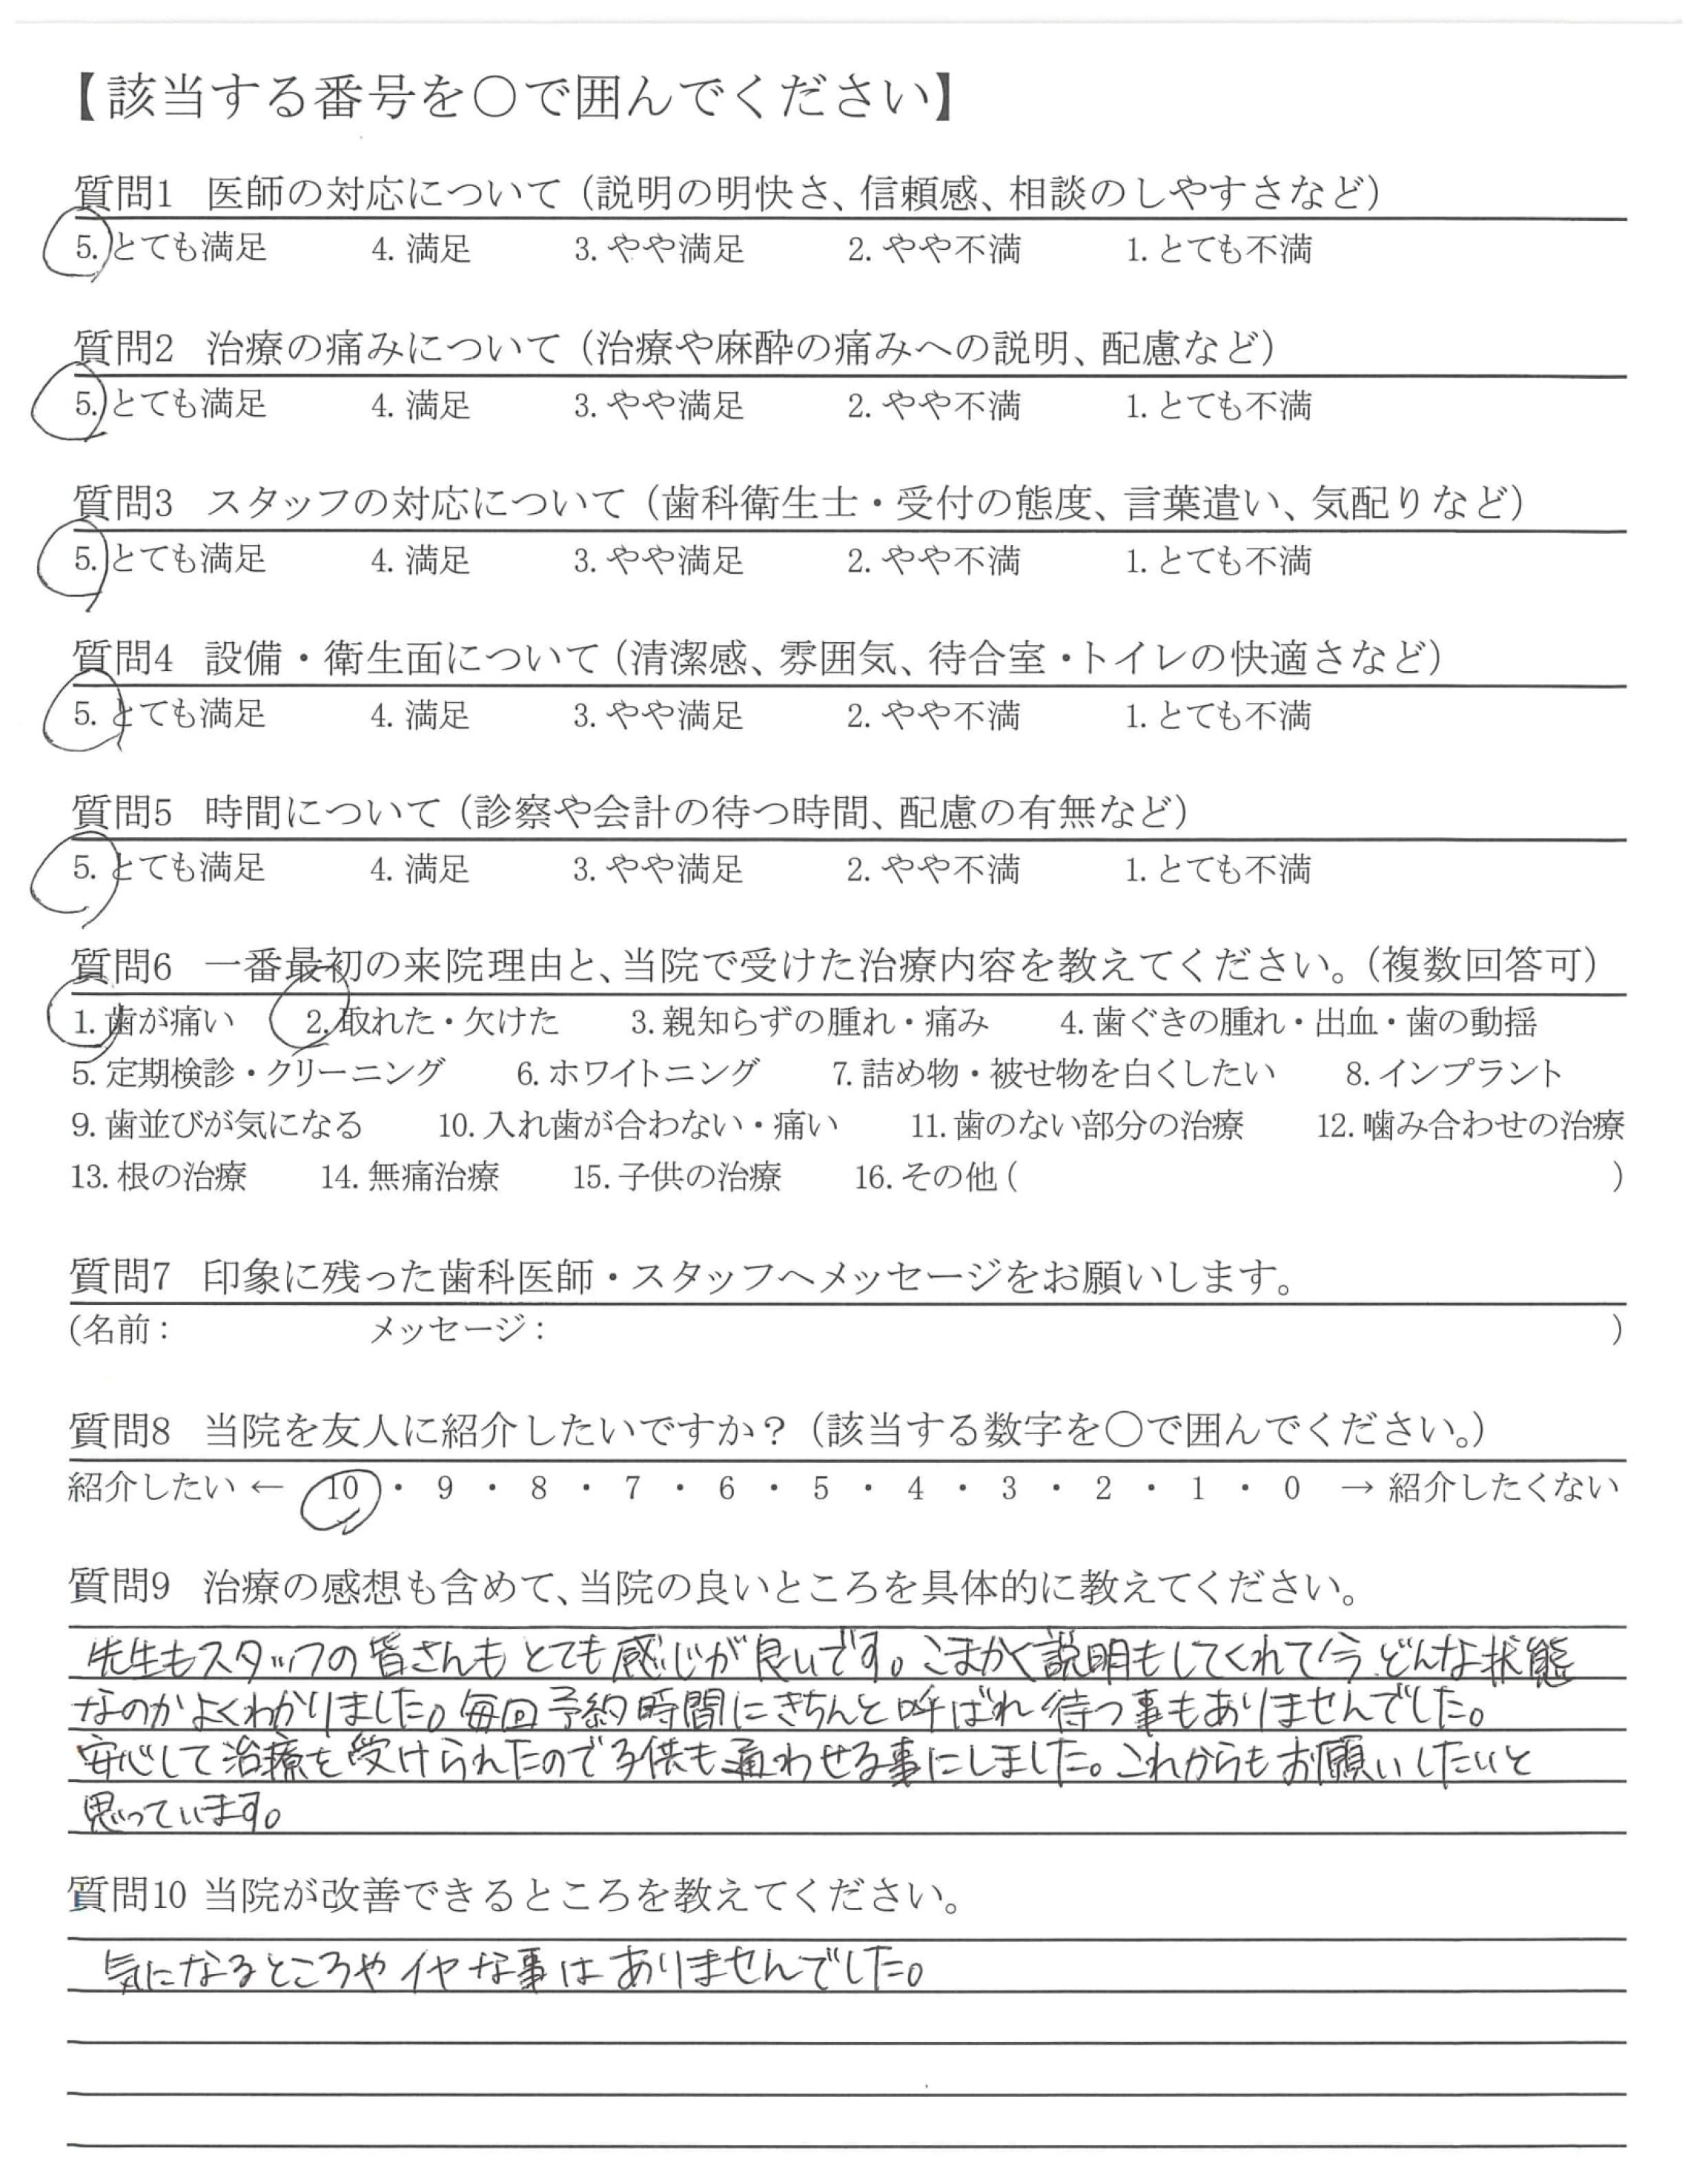 【該当する番号を〇で囲んでください】
質問1 医師の対応について（説明の明快さ、信頼感、相談のしやすさなど）
5. とても満足 4. 満足 3. やや満足 2. やや不満 1. とても不満
質問2 治療の痛みについて（治療や麻酔の痛みへの説明、配慮など）
5. とても満足 4. 満足 3. やや満足 2. やや不満 1. とても不満
質問3 スタッフの対応について（歯科衛生士・受付の態度、言葉遣い、気配りなど）
5. とても満足 4. 満足 3. やや満足 2. やや不満 1. とても不満
質問4 設備・衛生面について（清潔感、雰囲気、待合室・トイレの快適さなど）
5. とても満足 4. 満足 3. やや満足 2. やや不満 1. とても不満
質問5 時間について（診察や会計の待つ時間、配慮の有無など）
5. とても満足 4. 満足 3. やや満足 2. やや不満 1. とても不満
質問6 一番最初の来院理由と、当院で受けた治療内容を教えてください。（複数回答可）
1. 歯が痛い 2. 取れた・欠けた 3. 親知らずの腫れ・痛み 4. 歯ぐきの腫れ・出血・歯の動揺
5. 定期検診・クリーニング 6. ホワイトニング 7. 詰め物・被せ物を白くしたい 8. インプラント
9. 歯並びが気になる 10. 入れ歯が合わない・痛い 11. 歯のない部分の治療 12. 噛み合わせの治療
13. 根の治療 14. 無痛治療 15. 子供の治療 16. その他 ( )
質問7 印象に残った歯科医師・スタッフへメッセージをお願いします。
(名前： メッセージ： )
質問8 当院を友人に紹介したいですか？（該当する数字を〇で囲んでください。）
紹介したい ← 10 ・ 9 ・ 8 ・ 7 ・ 6 ・ 5 ・ 4 ・ 3 ・ 2 ・ 1 ・ 0 → 紹介したくない
質問9 治療の感想も含めて、当院の良いところを具体的に教えてください。
先生もスタッフの皆さんもとても感じが良いです。こまかく説明もしてくれて今どんな状態
なのかよくわかりました。毎回予約時間にきちんと呼ばれ待つ事もありませんでした。
安心して治療を受けられたので子供も通わせる事にしました。これからもお願いしたいと
思っています。
質問10 当院が改善できるところを教えてください。
気になるところやイヤな事はありませんでした。